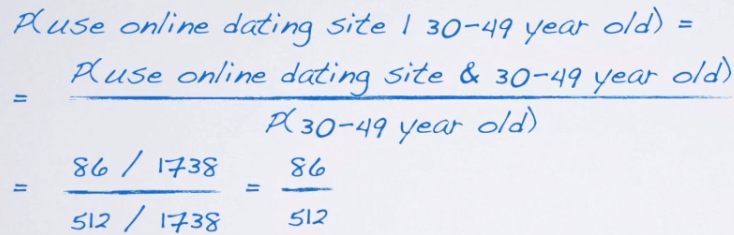 P(use online dating site | 30-49 year old) =
= P(use online dating site & 30-49 year old)
P(30-49 year old)
= 86 / 1738 = 86
512 / 1738 512